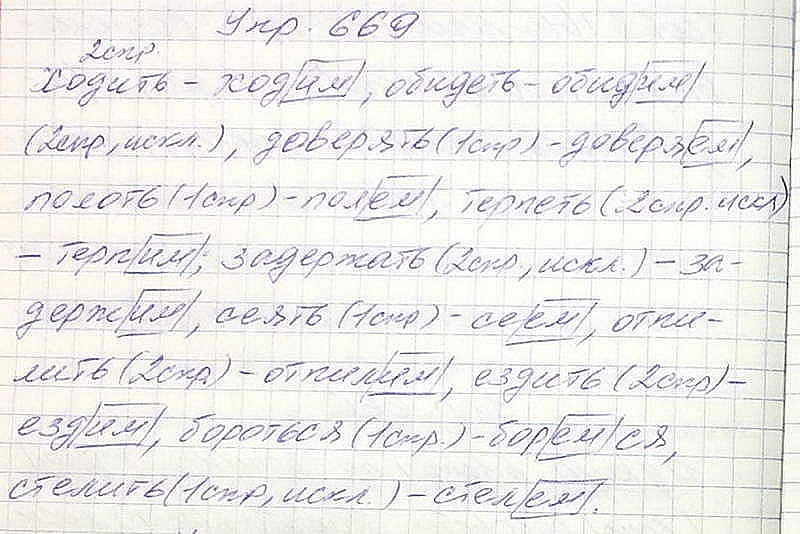 Упр. 669
2спр.
Ходить - ходим, обидеть - обидим
(2спр., искл.), доверять (1спр) - доверяем,
полоть (1спр) - полем, терпеть (2спр. искл)
- терпим; задержать (2спр., искл.) - за-
держим, сеять (1спр) - сеем, отпи-
лить (2спр) - отпилим, ездить (2спр) -
ездим, бороться (1спр.) - боремся,
стелить (1спр, искл.) - стелем.